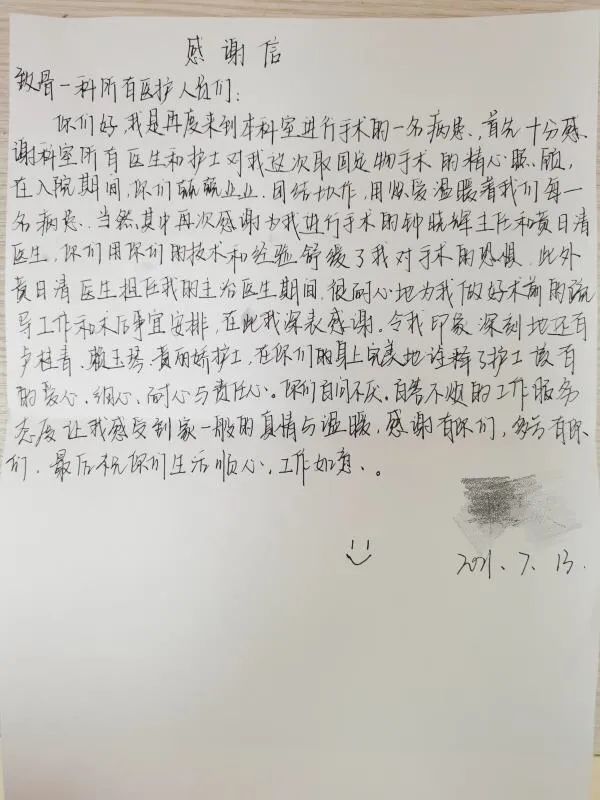 感谢信
致骨一科所有医护人员们:
你们好,我是再度来到本科室进行手术的一名病患,首先十分感
谢科室所有医生和护士对我这次取固定物手术的精心照顾,
在入院期间,你们兢兢业业.团结协作,用关爱温暖着我们每一
名病患.当然其中再次感谢为我进行手术的钟晓辉主任和黄日清
医生,你们用你们的技术和经验舒缓了我对手术的恐惧.此外
黄日清医生担任我的主治医生期间.很耐心地为我做好术前的疏
导工作和术后事宜安排,在此我深表感谢。令我印象深刻地还有
卢桂青、赖玉琴、黄丽娇护士,在你们的身上完美地诠释了护士该有
的爱心、细心、耐心与责任心。你们百问不厌,百答不烦的工作服务
态度让我感受到家一般的真情与温暖,感谢有你们,幸亏有你
们.最后祝你们生活顺心,工作如意、。
2021.7.13.